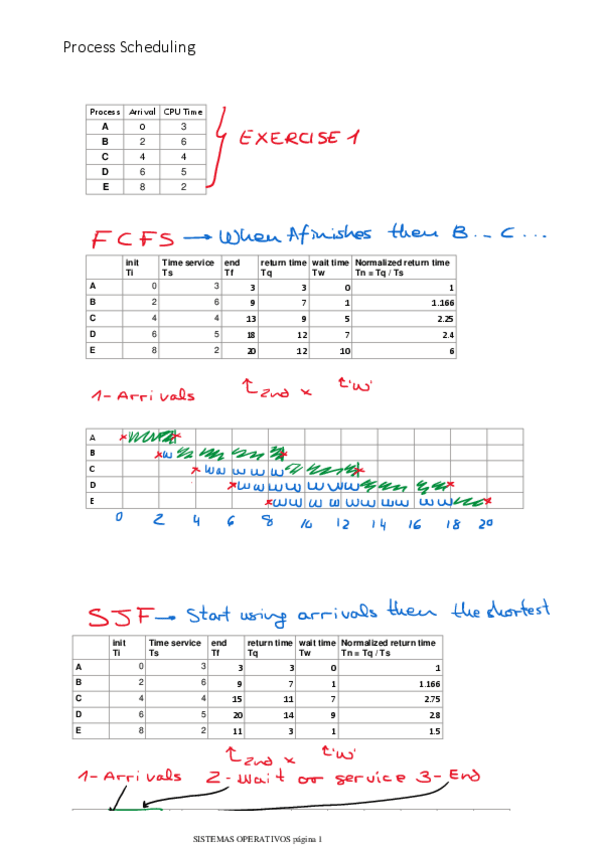 Process Scheduling
Process Arrival CPU Time
A 0 3
B 2 6
C 4 4
D 6 5
E 8 2
EXERCISE 1
FCFS → When A finishes then B... C...
init Time service end return time wait time Normalized return time
Ti Ts Tf Tq Tw Tn = Tq / Ts
A 0 3 3 3 0 1
B 2 6 9 7 1 1.166
C 4 4 13 9 5 2.25
D 6 5 18 12 7 2.4
E 8 2 20 12 10 6
1-Arrivals ↑2nd x t'w'
A
B w
C w w w w w
D w w w w w w w w
E w w w w w w w w w w
0 2 4 6 8 10 12 14 16 18 20
SJF → Start using arrivals then the shortest
init Time service end return time wait time Normalized return time
Ti Ts Tf Tq Tw Tn = Tq / Ts
A 0 3 3 3 0 1
B 2 6 9 7 1 1.166
C 4 4 15 11 7 2.75
D 6 5 20 14 9 2.8
E 8 2 11 3 1 1.5
↑2nd x t'w'
1-Arrivals 2-Wait or service 3-End
SISTEMAS OPERATIVOS página 1